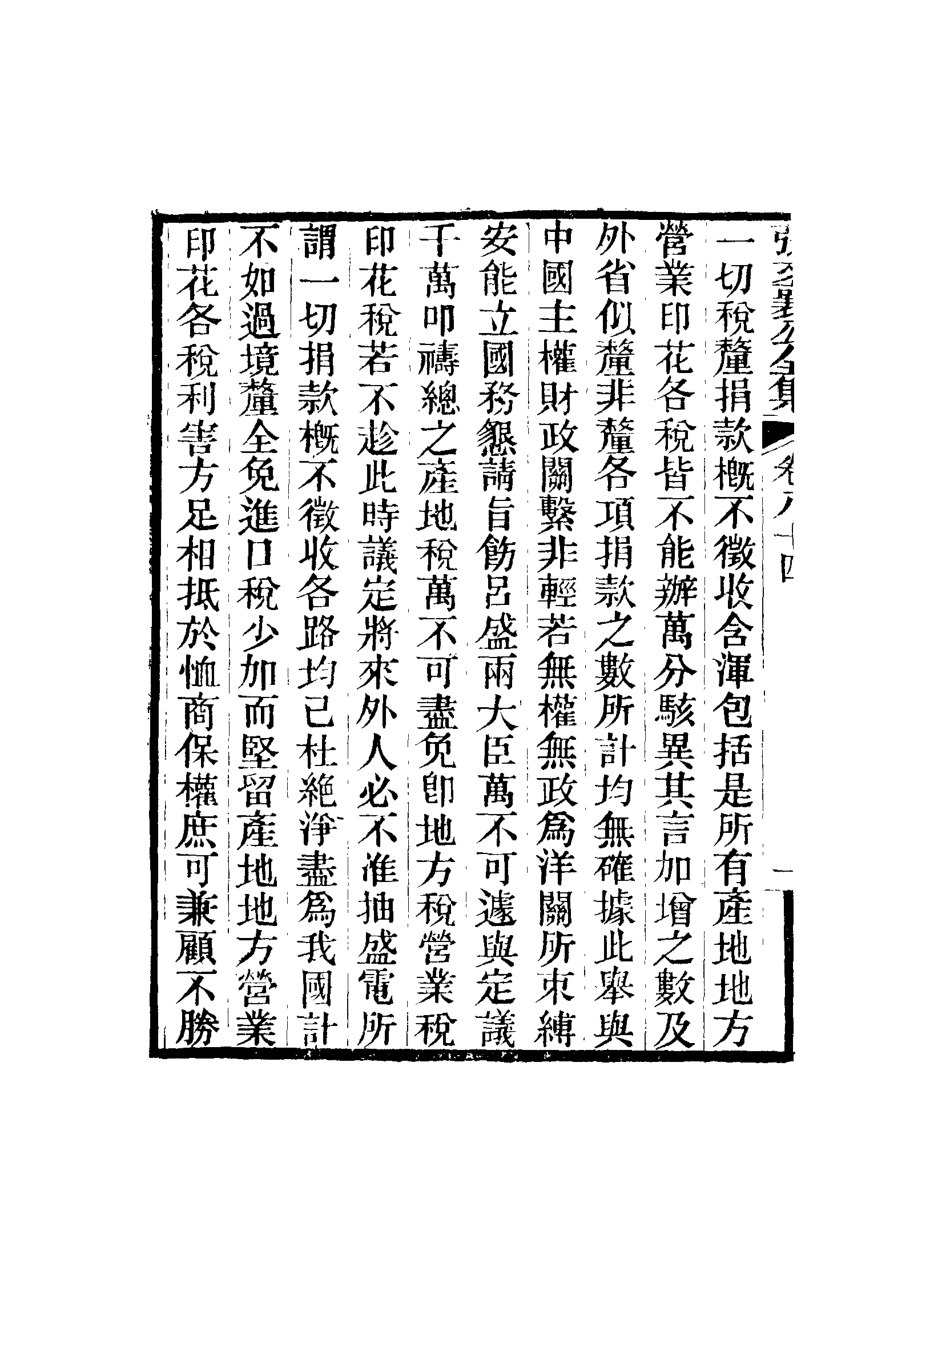 張文襄公全集 卷八十四 一
一切稅釐捐款槪不徵收含渾包括是所有產地地方
營業印花各稅皆不能辦萬分駭異其言加增之數及
外省似釐非釐各項捐款之數所計均無確據此舉與
中國主權財政關繫非輕若無權無政爲洋關所束縛
安能立國務懇請旨飭呂盛兩大臣萬不可遽與定議
千萬叩禱總之產地稅萬不可盡免卽地方稅營業稅
印花稅若不趁此時議定將來外人必不准抽盛電所
謂一切捐款槪不徵收各路均已杜絶淨盡爲我國計
不如過境釐全免進口稅少加而堅留產地地方營業
印花各稅利害方足相抵於恤商保權庶可兼顧不勝